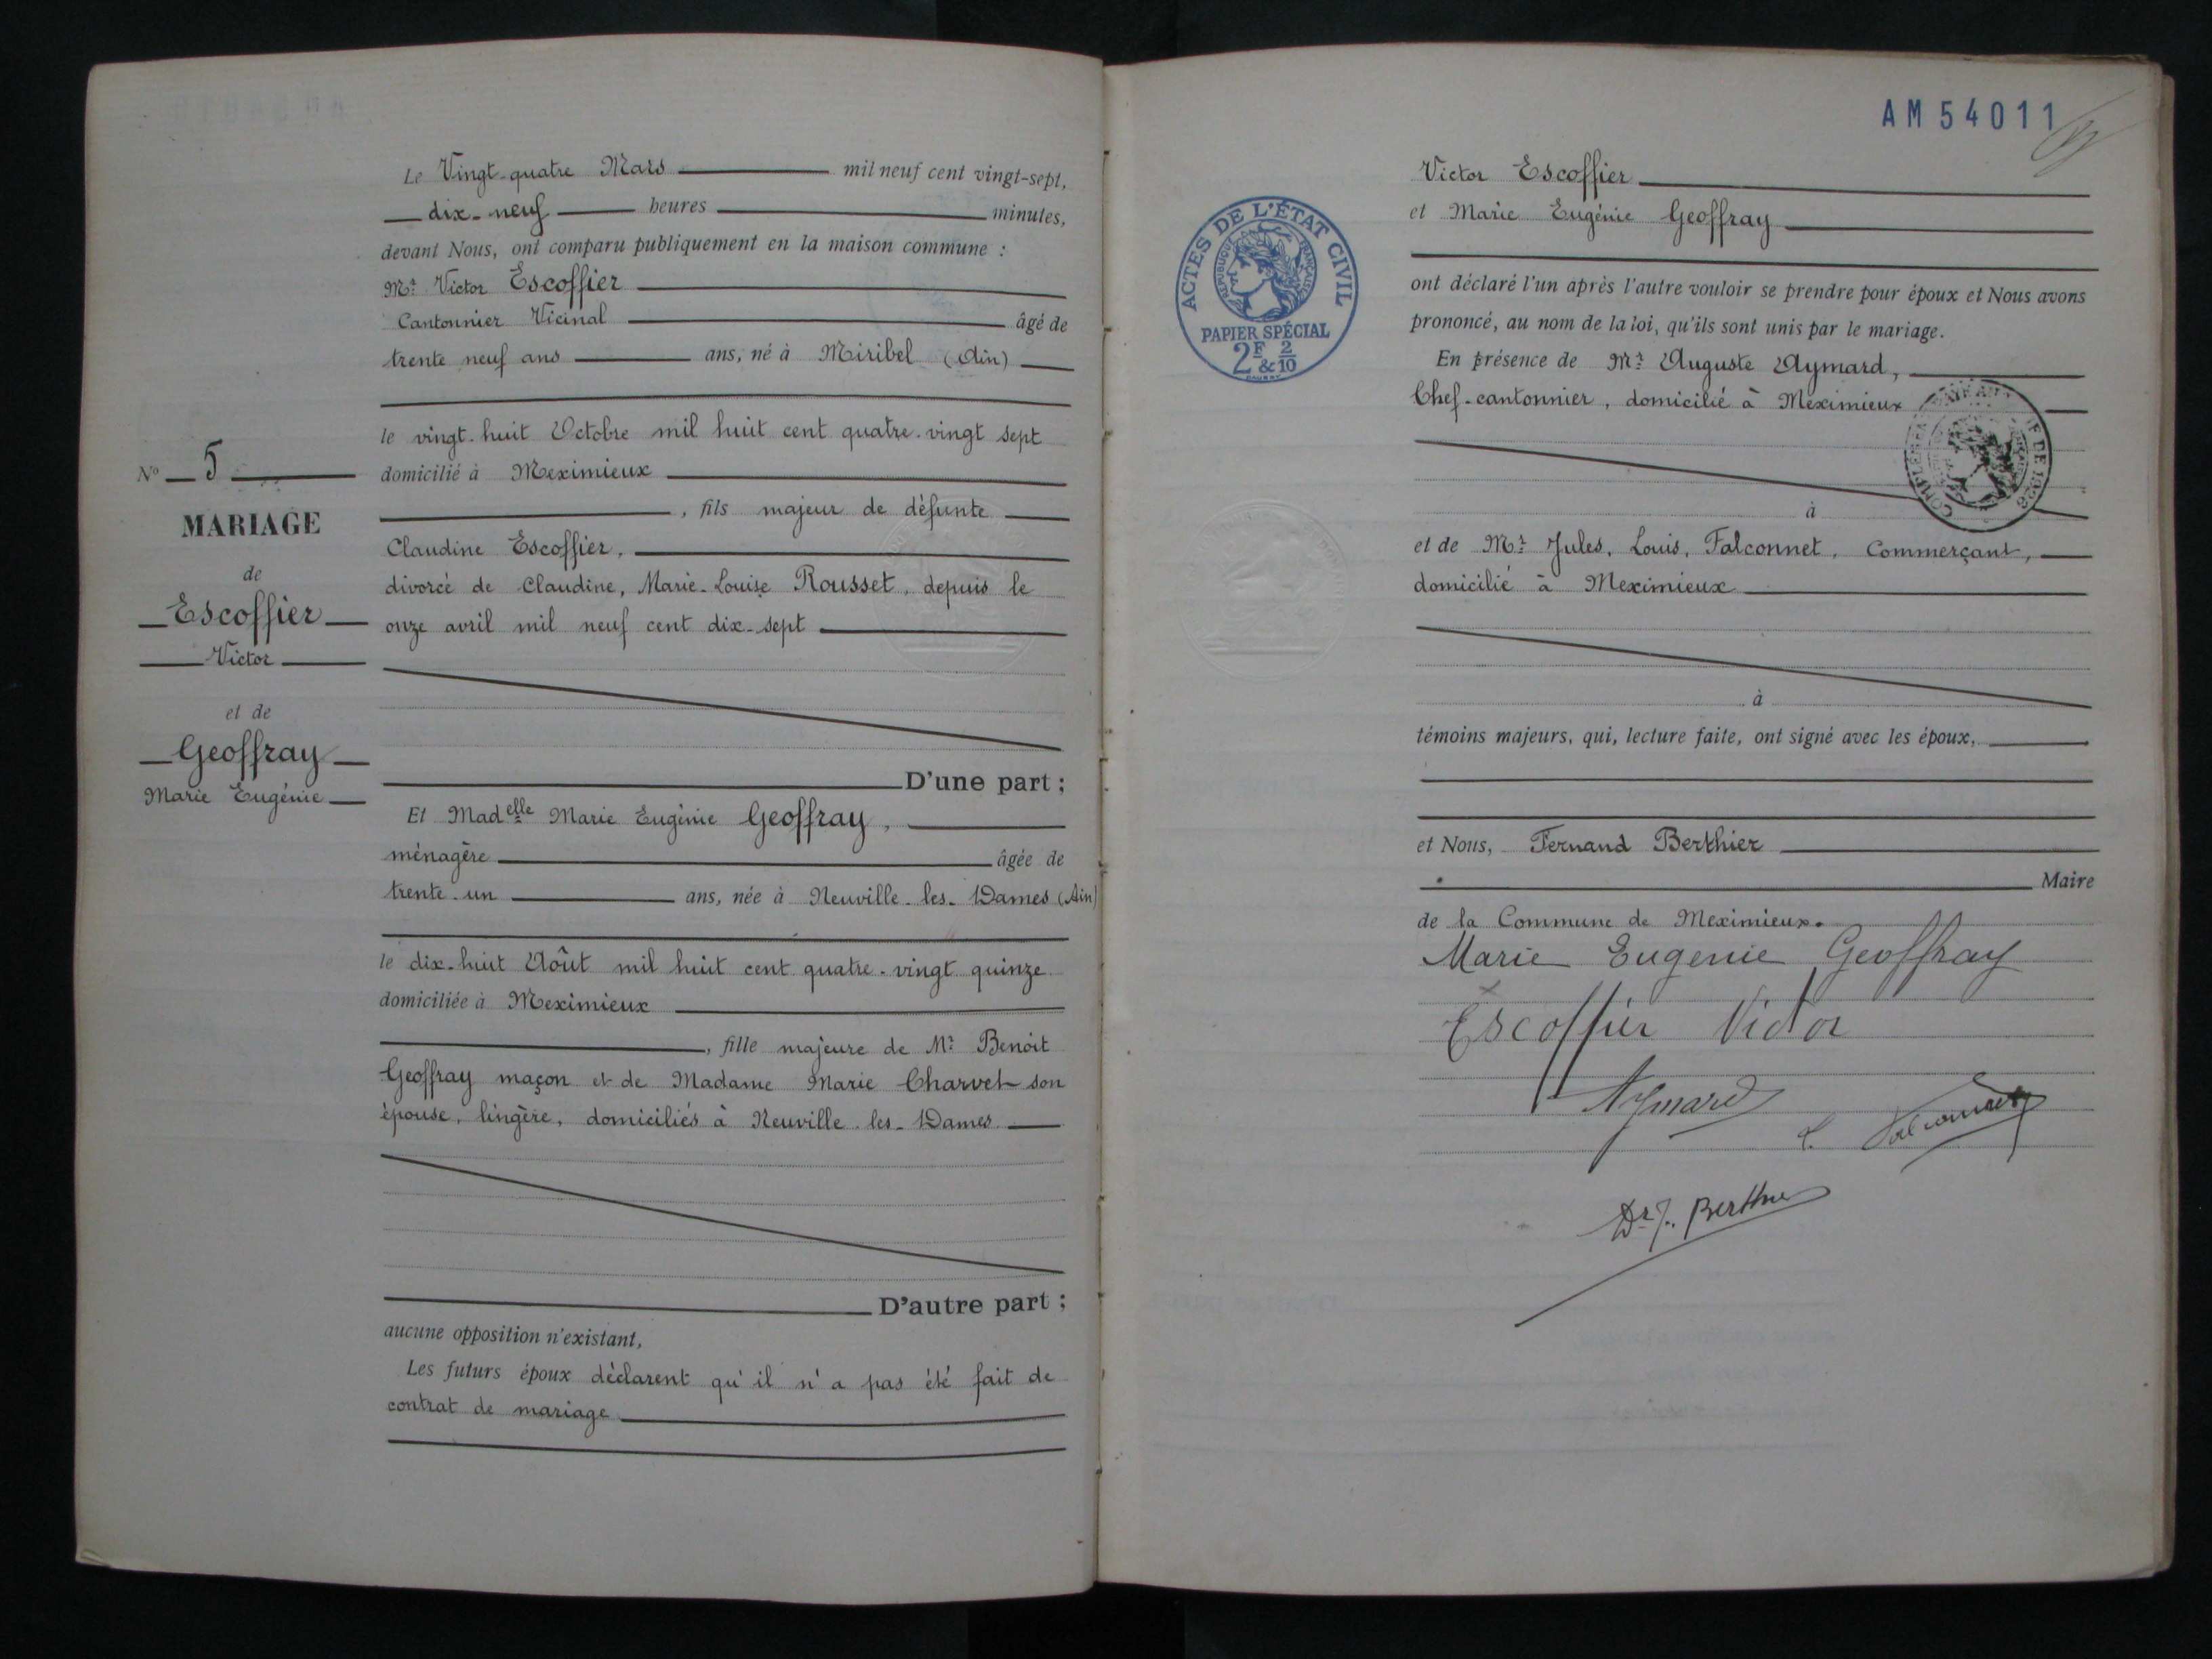 Le Vingt-quatre Mars mil neuf cent vingt-sept,
dix-neuf heures minutes,
devant Nous, ont comparu publiquement en la maison commune :
Mr. Victor Escoffier
Cantonnier Vicinal âgé de
trente neuf ans ans, né à Miribel (Ain)
le vingt-huit Octobre mil huit cent quatre-vingt sept
domicilié à Meximieux
, fils majeur de défunte
Claudine Escoffier,
divorcé de Claudine, Marie-Louise Rousset, depuis le
onze avril mil neuf cent dix-sept
D'une part ;
Et Madelle Marie Eugénie Geoffray,
ménagère âgée de
trente-un ans, née à Neuville-les-Dames (Ain)
le dix-huit Août mil huit cent quatre-vingt quinze
domiciliée à Meximieux
, fille majeure de Mr. Benoit
Geoffray maçon et de Madame Marie Charvet son
épouse, lingère, domiciliés à Neuville-les-Dames
D'autre part ;
aucune opposition n'existant,
Les futurs époux déclarent qu'il n'a pas été fait de
contrat de mariage
No 5
MARIAGE
de
Escoffier
Victor
et de
Geoffray
Marie Eugénie
AM 54011
ACTES DE L'ÉTAT CIVIL
RÉPUBLIQUE FRANÇAISE
PAPIER SPÉCIAL
2F & 2/10
Victor Escoffier
et Marie Eugénie Geoffray
ont déclaré l'un après l'autre vouloir se prendre pour époux et Nous avons
prononcé, au nom de la loi, qu'ils sont unis par le mariage.
En présence de Mr. Auguste Aymard,
Chef-cantonnier, domicilié à Meximieux
à
et de Mr. Jules, Louis, Falconnet, Commerçant,
domicilié à Meximieux
à
témoins majeurs, qui, lecture faite, ont signé avec les époux,
et Nous, Fernand Berthier
Maire
de la Commune de Meximieux.
Marie Eugenie Geoffray
Escoffier Victor
Aymard
L Falconnet
Dr F. Berthier